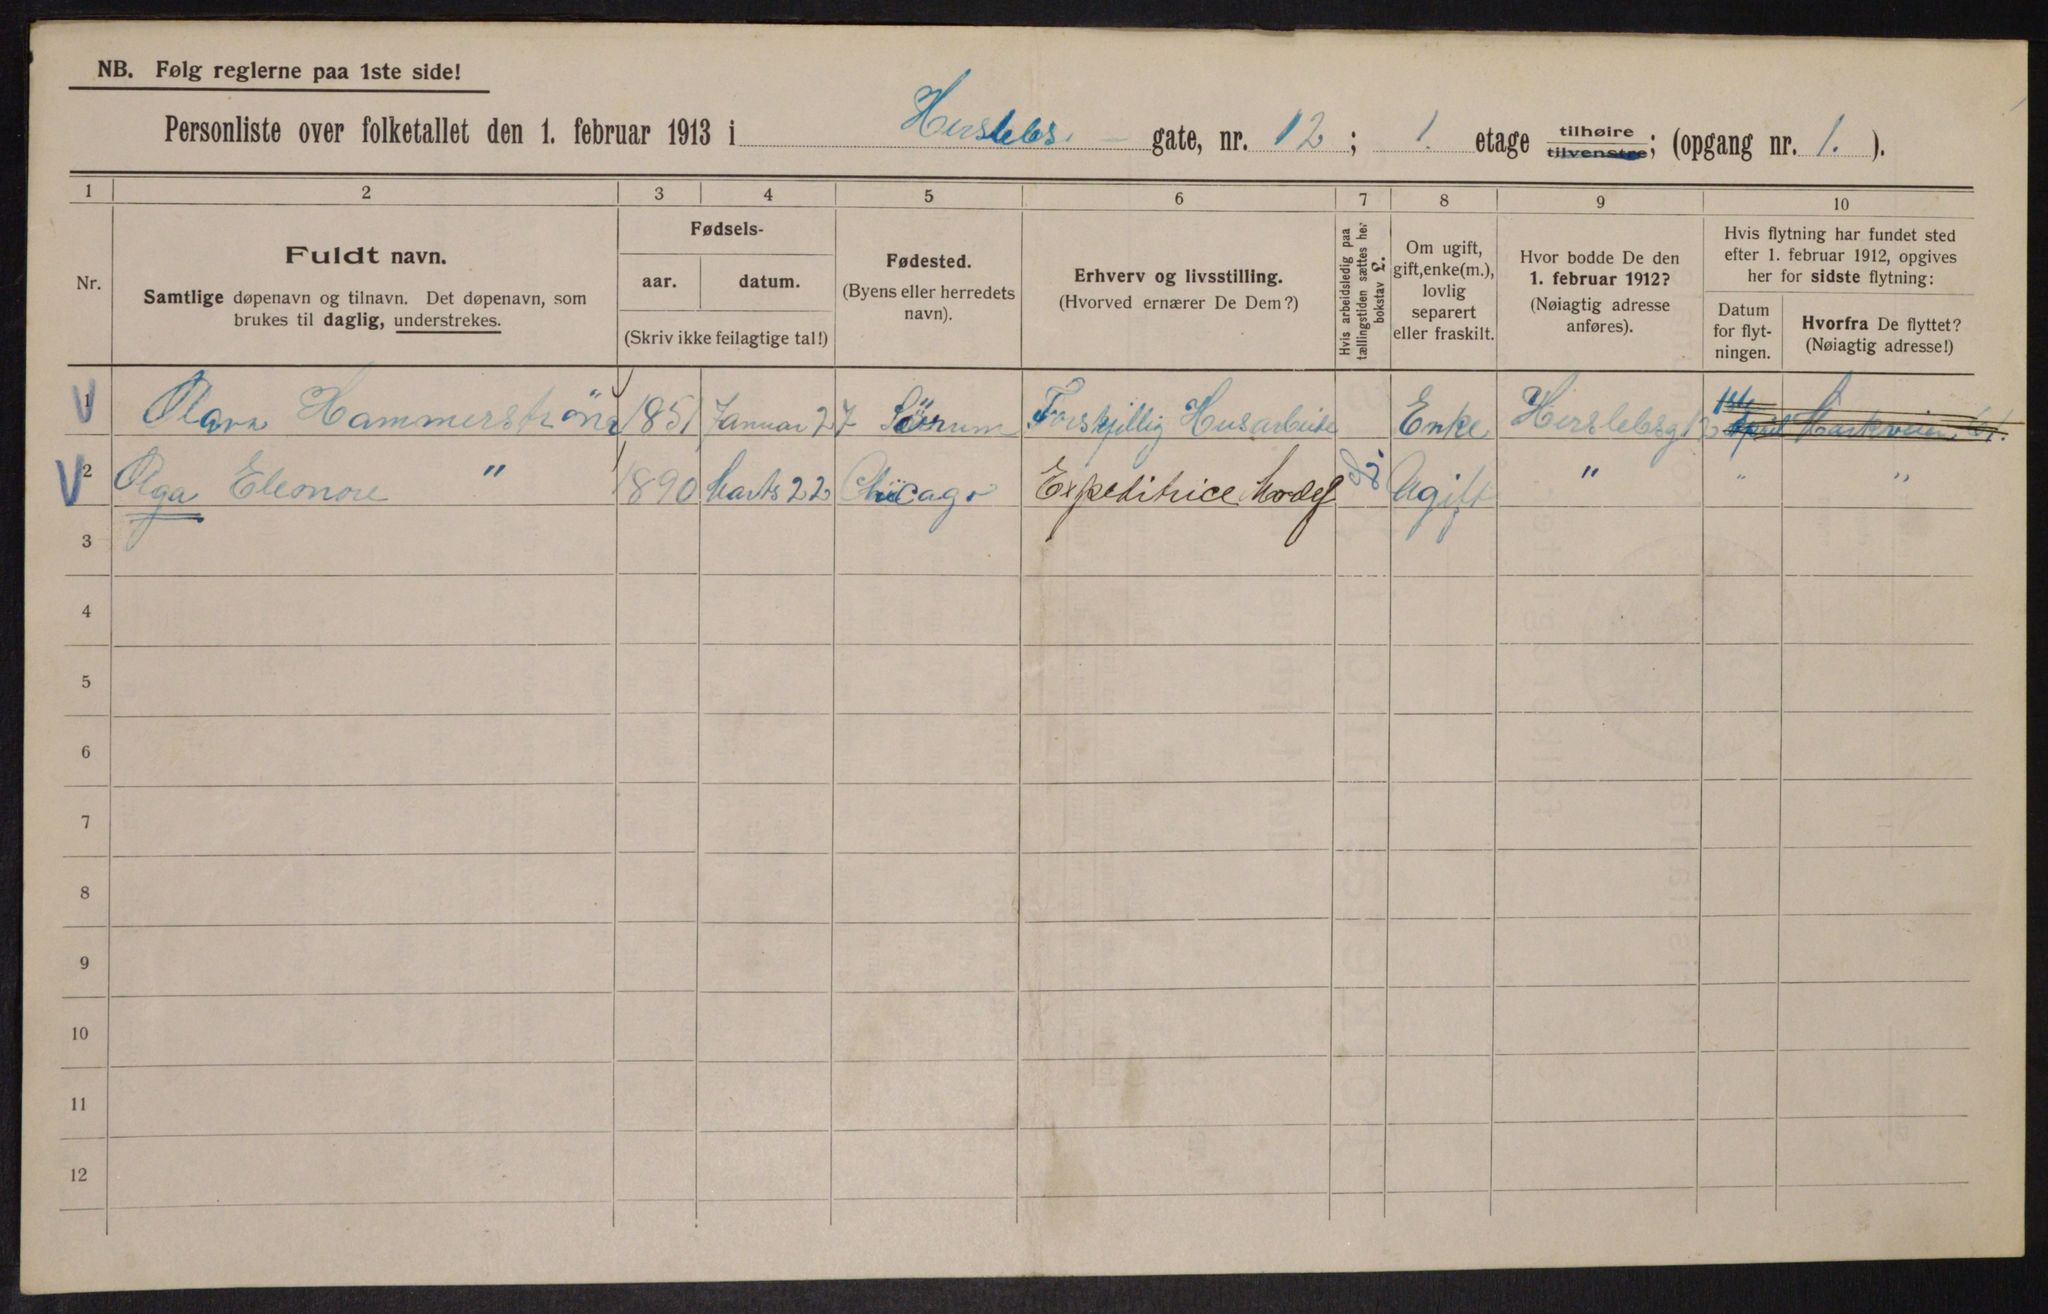 NB. Følg reglerne paa 1ste side!
Personliste over folketallet den 1. februar 1913 i Herslebs - gate, nr. 12; 1. etage tilhøire tilvenstre; (opgang nr. 1.).
1 2 3 4 5 6 7 8 9 10
Nr.
Fuldt navn.
Samtlige døpenavn og tilnavn. Det døpenavn, som
brukes til daglig, understrekes.
Fødsels-
aar. datum.
(Skriv ikke feilagtige tal!)
Fødested.
(Byens eller herredets
navn).
Erhverv og livsstilling.
(Hvorved ernærer De Dem?)
Hvis arbeidsledig paa
tællingstiden sættes her
bokstav L.
Om ugift,
gift, enke(m.),
lovlig
separert
eller fraskilt.
Hvor bodde De den
1. februar 1912?
(Nøiagtig adresse
anføres).
Hvis flytning har fundet sted
efter 1. februar 1912, opgives
her for sidste flytning:
Datum
for flyt-
ningen.
Hvorfra De flyttet?
(Nøiagtig adresse!)
V 1 Olava Hammerström 1851 Januar 27 Sörum Forskjellig Husarbeide Enke Herslebsg 12 1ste April Markveien
V 2 Olga Eleonore " 1890 Marts 22 Chicago Expeditrice Ugift " " "
3
4
5
6
7
8
9
10
11
12